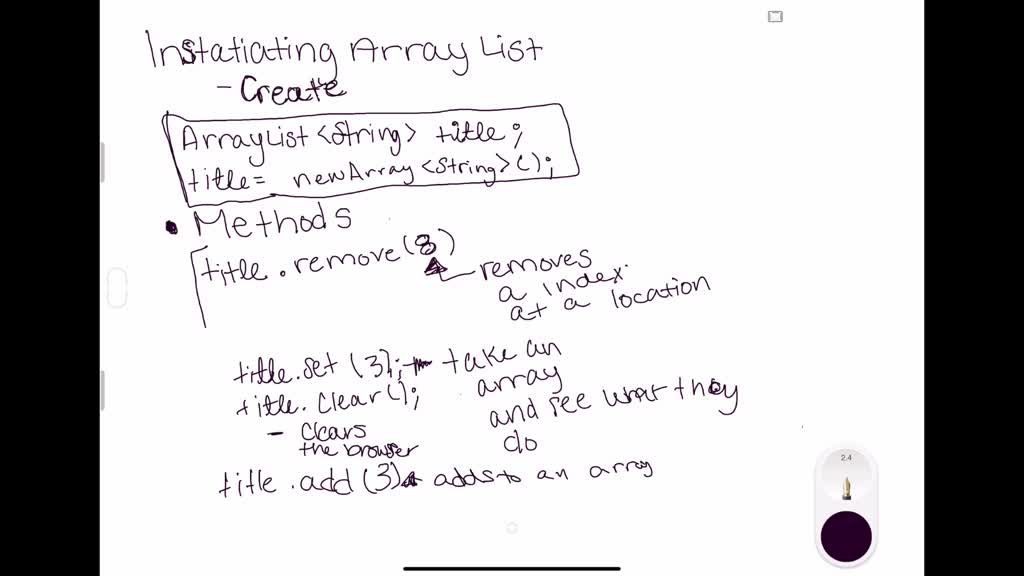 Instatiating Array List
- Create
ArrayList <String> title;
title = new Array <String> ();
• Methods
title.remove(8)
removes
a index.
at a location
title.set (3); - take an
array
and see what they
do
title. clear();
- clears
the browser
title.add (3) adds to an array
2.4